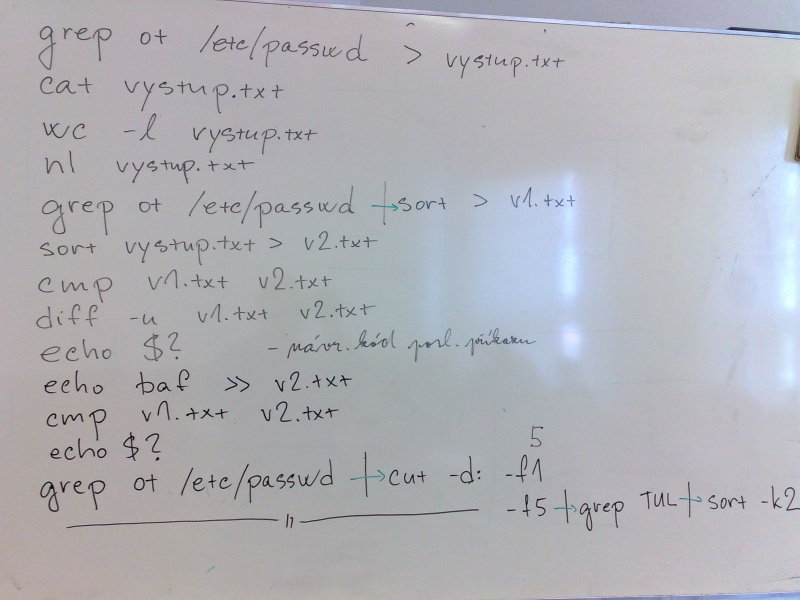 grep ot /etc/passwd > vystup.txt
cat vystup.txt
wc -l vystup.txt
nl vystup.txt
grep ot /etc/passwd | sort > v1.txt
sort vystup.txt > v2.txt
cmp v1.txt v2.txt
diff -u v1.txt v2.txt
echo $? - návr. kód posl. příkazu
echo baf >> v2.txt
cmp v1.txt v2.txt
echo $?
5
grep ot /etc/passwd | cut -d: -f1
-"- -f5 | grep TUL | sort -k2